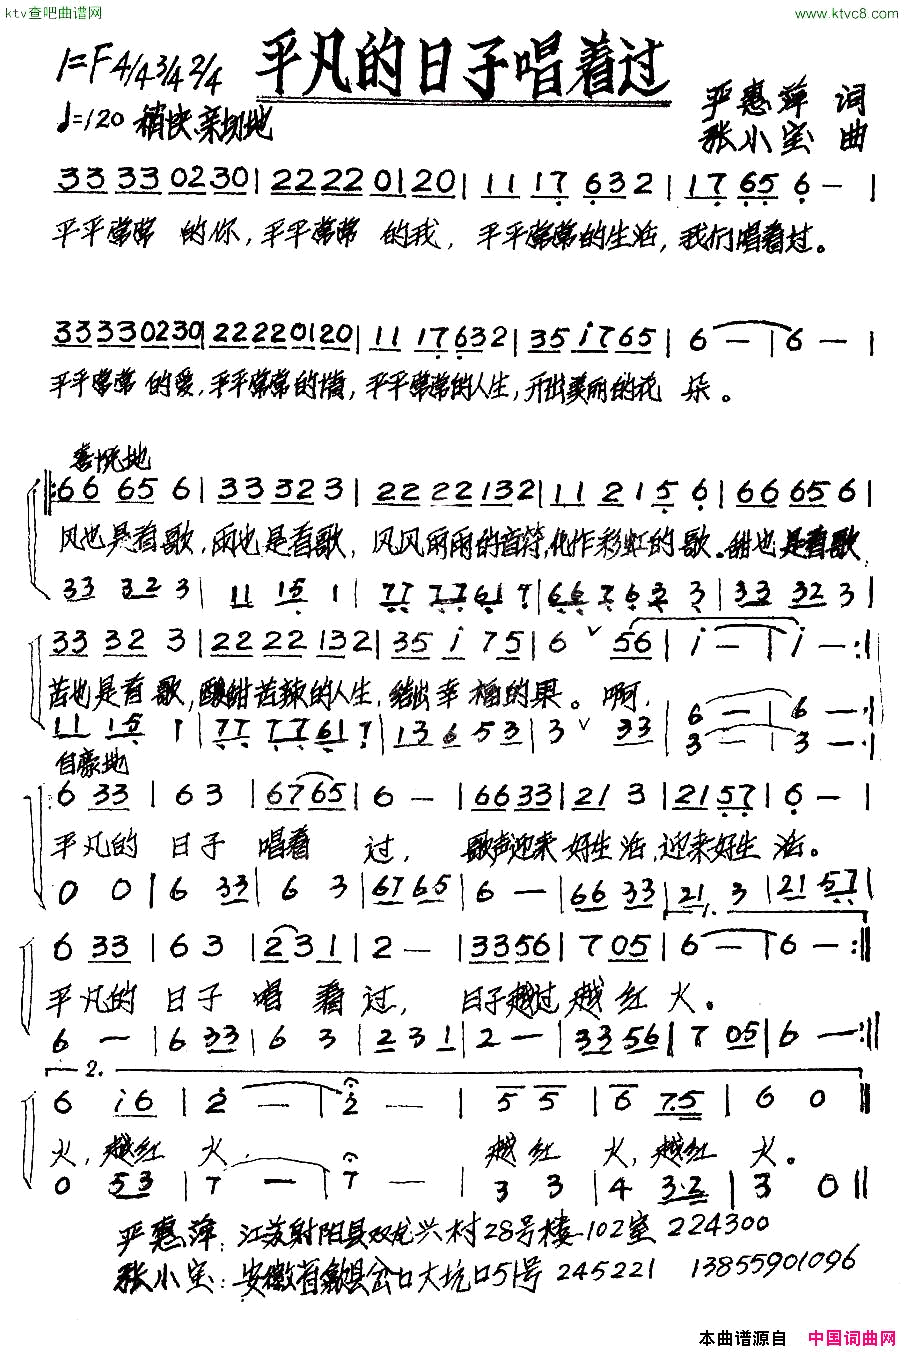 ktv查吧曲谱网
www.ktvc8.com
平凡的日子唱着过
1=F 4/4 3/4 2/4
♩=120 稍快 亲切地
严惠萍 词
张小宝 曲
33 33 02 30 | 22 22 01 20 | 11 17 632 | 17 65 6 — |
平平常常 的你,平平常常 的我, 平平常常的生活,我们唱着过。
33 33 02 30 | 22 22 01 20 | 11 17 632 | 35 i7 65 | 6 — | 6 — |
平平常常 的爱,平平常常的情,平平常常的人生,开出美丽的花 朵。
喜悦地
66 65 6 | 33 32 3 | 22 22 132 | 11 21 5 6 | 66 65 6 |
风也是首歌,雨也是首歌, 风风雨雨的音符,化作彩虹的歌。甜也是首歌
33 32 3 | 11 15 1 | 77 77 61 7 | 66 76 3 3 | 33 32 3
33 32 3 | 22 22 132 | 35 i 75 | 6 ∨ 56 | i — | i — :||
苦也是首歌,酸甜苦辣的人生,结出幸福的果。啊,
11 15 1 | 77 77 61 7 | 13 6 53 | 3 ∨ 33 | 6 — | 6 — :||
3 — | 3 — :||
自豪地
6 33 | 63 | 67 65 | 6 — | 66 33 | 21 3 | 21 57 | 6 — |
平凡的 日子 唱着 过, 歌声迎来 好生活,迎来好生 活。
0 0 | 6 33 | 6 3 | 67 65 | 6 — | 66 33 | 21 3 | 21 57 |
1.
6 33 | 63 | 23 1 | 2 — | 33 56 | 7 05 | 6 — | 6 — :||
平凡的 日子 唱 着 过, 日子越过 越红 火。
6 — | 6 33 | 6 3 | 2 3 1 | 2 — | 33 56 | 7 05 | 6 — :||
2.
6 i6 | 2 — | 2 — | 5 5 | 6 7·5 | 6 0 ||
火,越红 火 越 红 火,越红 火。
0 53 | 7 — | 7 — | 3 3 | 4 3·2 | 3 0 ||
严惠萍:江苏射阳县双龙兴村28号楼102室 224300
张小宝:安徽省歙县岔口大坑口51号 245221 13855901096
本曲谱源自 中国词曲网